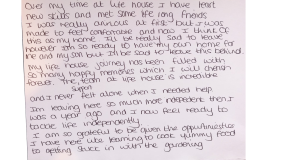 Over my time at life house I have learnt
new skills and met some life long friends
I was really anxious at first but I was
made to feel comfortable and now I think of
this as my home. I'll be really sad to leave
however I'm so ready to have my own home for
me and my son but I'll be sad to leave this behind.
my life house journey has been filled with
so many happy memories which I will cherish
forever. The team at life house is incredible
support
and I never felt alone when I needed help
I'm leaving here so much more independent then I
was a year ago and I now feel ready to
tackle life independently.
I am so grateful to be given the opportunities
I have here like learning to cook yummy food
to getting stuck in with the gardening